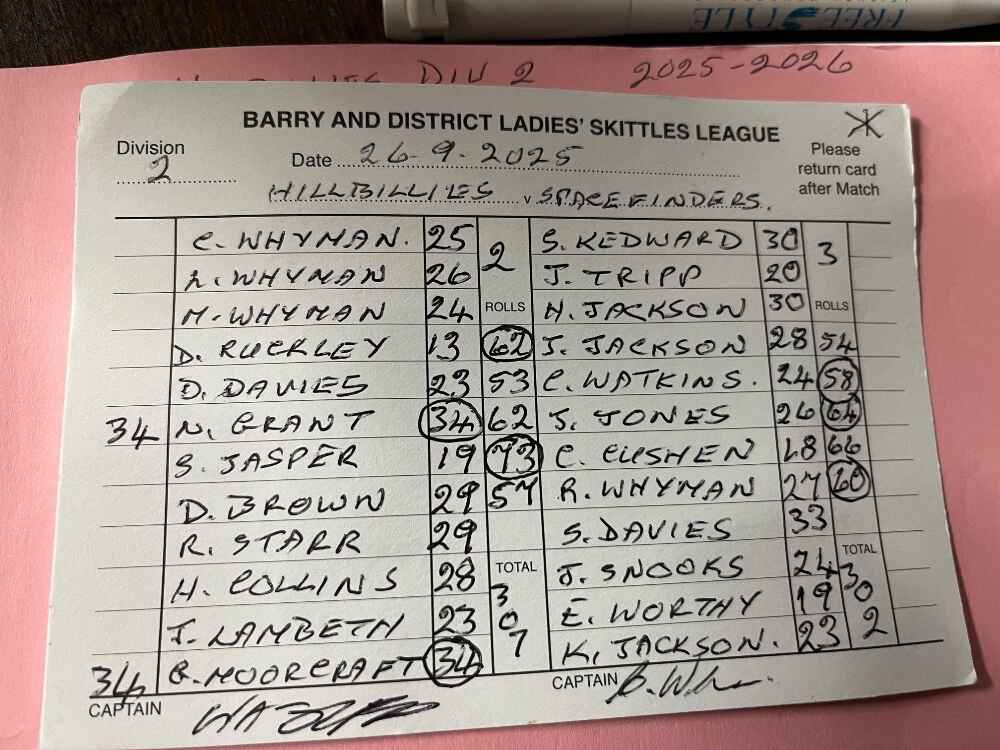 FREESTYLE
DIV 2 2025-2026
BARRY AND DISTRICT LADIES' SKITTLES LEAGUE
Division 2 Date 26-9-2025 Please return card after Match
HILLBILLIES v SPACEFINDERS.
C. WHYMAN. 25 2 S. KEDWARD 30 3
L. WHYMAN 26 J. TRIPP 20
M. WHYMAN 24 ROLLS H. JACKSON 30 ROLLS
D. RUCKLEY 13 62 J. JACKSON 28 54
D. DAVIES 23 53 C. WATKINS. 24 58
34 N. GRANT 34 62 J. JONES 26 64
S. JASPER 19 73 C. CUSHEN 18 66
D. BROWN 29 57 R. WHYMAN 27 60
R. STARR 29 S. DAVIES 33
H. COLLINS 28 TOTAL J. SNOOKS 24 TOTAL
J. LAMBETH 23 307 E. WORTHY 19 302
34 G. MOORCRAFT 34 K. JACKSON. 23
CAPTAIN CAPTAIN